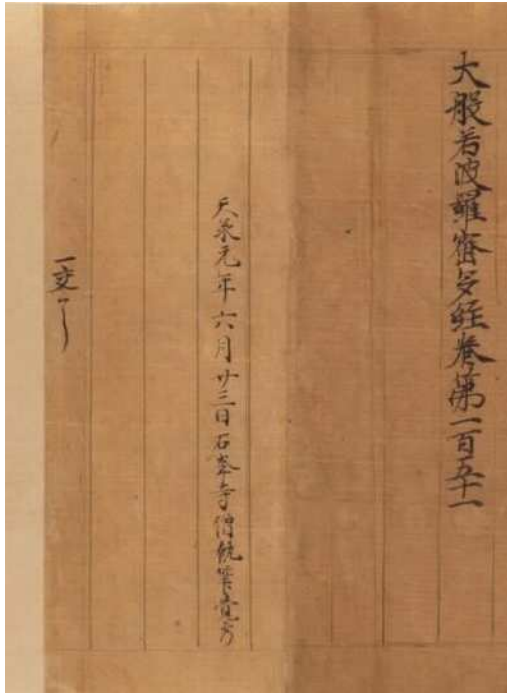 大般若波羅蜜多経巻第一百五十一
天承元年六月廿三日石峯寺僧
一交了